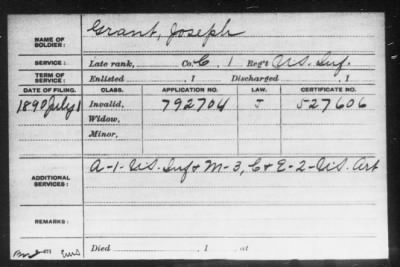 NAME OF SOLDIER: Grant, Joseph
SERVICE: Late rank, Co. C, 1 Reg't U.S. Inf.
TERM OF SERVICE: Enlisted , 1 Discharged , 1
DATE OF FILING. CLASS. APPLICATION NO. LAW. CERTIFICATE NO.
1890 July 1 Invalid, 792704 J 527606
Widow,
Minor,
ADDITIONAL SERVICES: A-1-U.S. Inf & M-3, C & E-2-U.S. Art
REMARKS:
Died , 1 , at